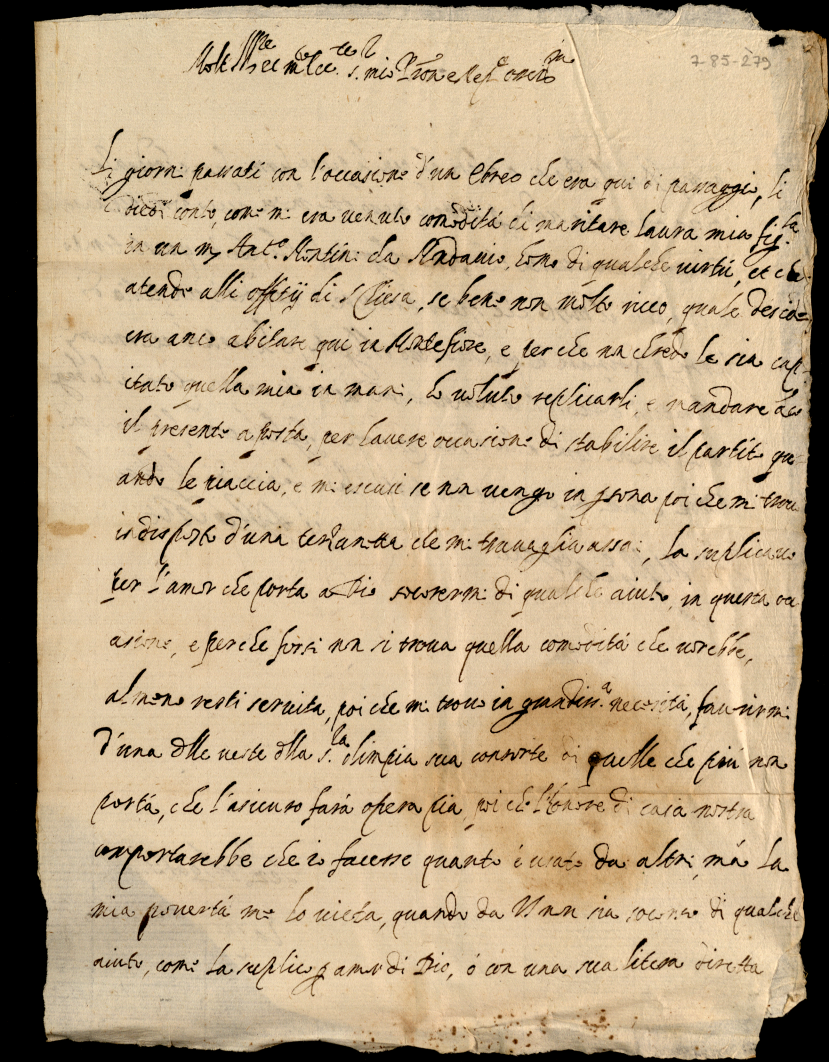 7-85-279
Molt Ill.re et m.to Ecc.te S.r mio
Li giorni passati con l'occasione d'un Ebreo che era qui di passaggio, li
diedi conto, come mi era venuto comodità di maritare laura mia fig.la
in un m. Ant.o Montini da Mondavio, homo di qualche virtù, et che
atende alli offitij di s. Chiesa, se bene non molto ricco, quale deside=
era anco abitare qui in Montefiore, e perche non chredo le sia cap=
itato quella mia in mani, ho voluto replicarli, e mandare
il presente a posta, per havere occasione di stabilire il partito qu=
ando le piaccia, e mi escusi se non vengo in psona poi che mi trovo
indisposto d'una terzanetta che mi travaglia assai, la suplico
per l'amor che porta a Dio socorermi di qualche aiuto, in questa occ
asione, e perche forsi non si trova quella comodità che vorebbe,
almeno resti servita, poi che mi trovo in grandiss.a necesità, favorirmi
d'una dlle veste dlla S.ra olimpia sua consorte di quelle che più non
portà, che l'asicuro farà opera pia, poi che l'honore di casa nostra
comportarebbe che io facesse quanto è usato da altri, mà la
mia povertà me lo vieta, quando da V. non sia socorso di qualche
aiuto, come la suplico p amor di Dio, ò con una sua litera diretta